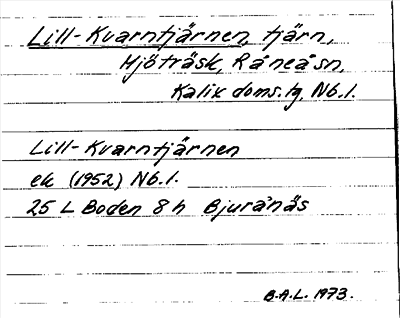 Lill-Kvarntjärnen, tjärn,
Mjöträsk, Råneå sn,
Kalix doms.tg, Nb.l.
Lill-Kvarntjärnen
ek (1952) Nb.l.
25 L Boden 8h Bjurånäs
B.A.L. 1973.